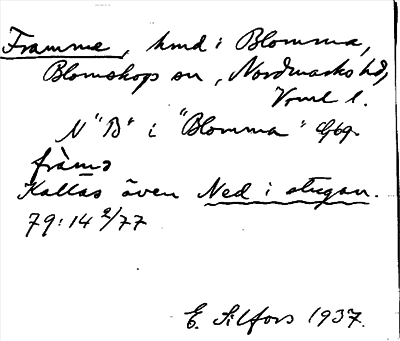 Framme, hmd i Blomma,
Blomskogs sn, Nordmarks hd,
Vrml l.
N "B" i "Blomma"
främə
Kallas även Ned i stugan.
79:14 2/77
E. Silfors 1937.